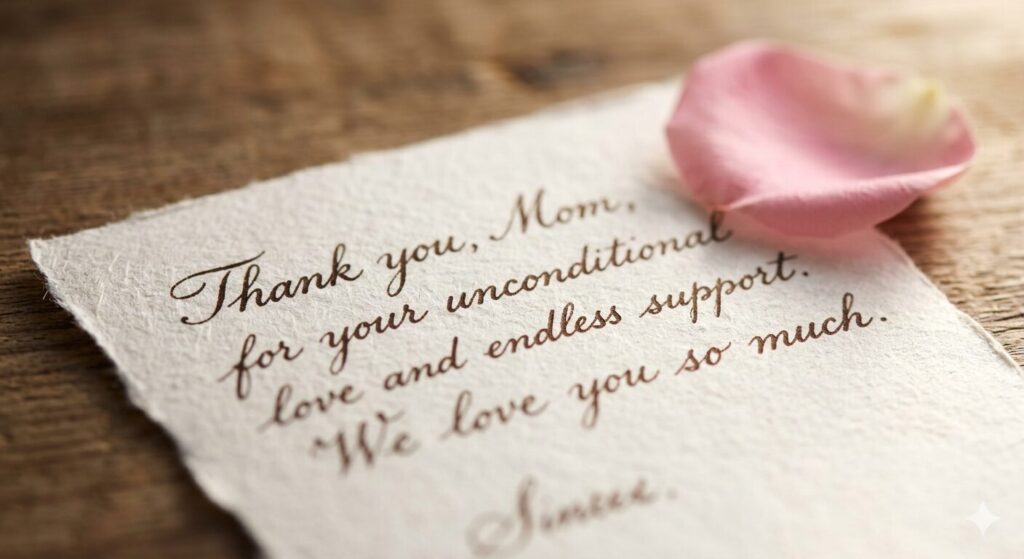 Thank you, Mom,
for your unconditional
love and endless support.
We love you so much.